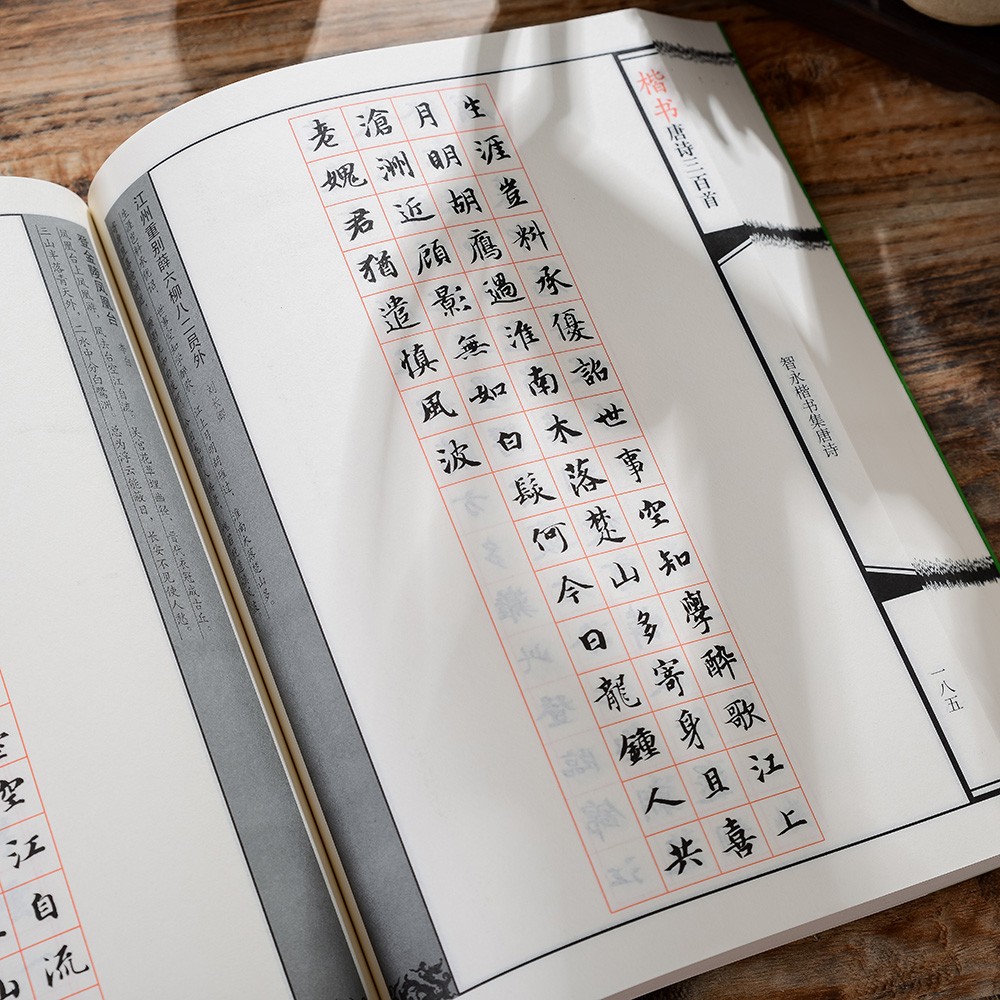 楷书唐诗三百首
智永楷书集唐诗
一八五
生涯豈料承優詔世事空知學醉歌江上
月明胡鴈過淮南木落楚山多寄身且喜
滄洲近顧影無如白髮何今日龍鍾人共
老媿君猶遣慎風波
江州重别薛六柳八二员外 刘长卿
登金陵凤凰台 李白
凤凰台上凤凰游，凤去台空江自流。吴宫花草埋幽径，晋代衣冠成古丘。
三山半落青天外，二水中分白鹭洲。总为浮云能蔽日，长安不见使人愁。
空江自流
山